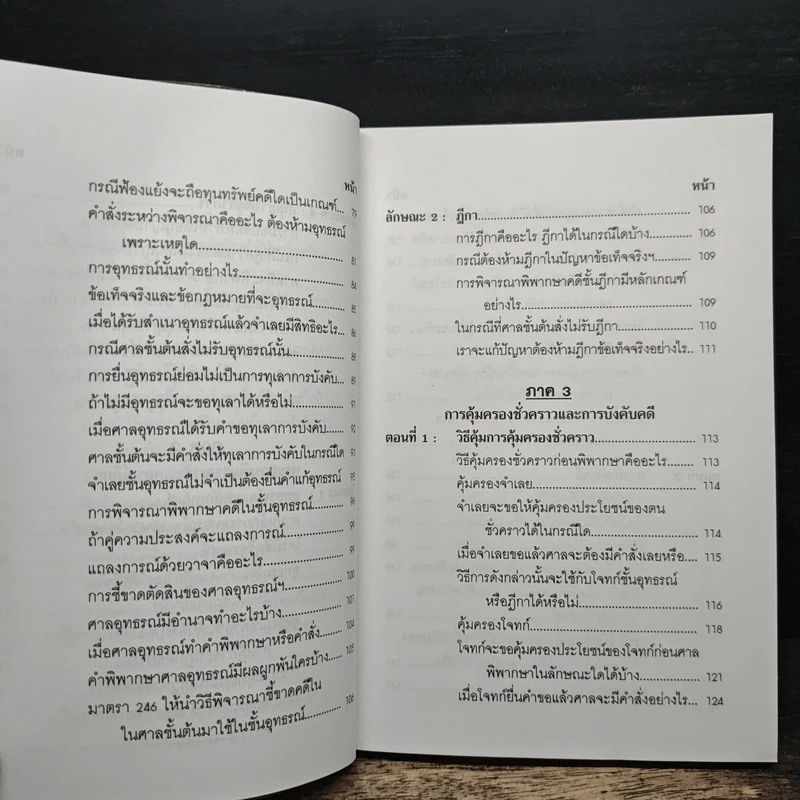 หน้า
กรณีฟ้องแย้งจะถือทุนทรัพย์คดีใดเป็นเกณฑ์... 79
คำสั่งระหว่างพิจารณาคืออะไร ต้องห้ามอุทธรณ์
เพราะเหตุใด........................ 81
การอุทธรณ์นั้นทำอย่างไร........................ 84
ข้อเท็จจริงและข้อกฎหมายที่จะอุทธรณ์............ 85
เมื่อได้รับสำเนาอุทธรณ์แล้วจำเลยมีสิทธิอะไร... 88
กรณีศาลชั้นต้นสั่งไม่รับอุทธรณ์นั้น............ 88
การยื่นอุทธรณ์ย่อมไม่เป็นการทุเลาการบังคับ.. 89
ถ้าไม่มีอุทธรณ์จะขอทุเลาได้หรือไม่............ 91
เมื่อศาลอุทธรณ์ได้รับคำขอทุเลาการบังคับ...... 92
ศาลชั้นต้นจะมีคำสั่งให้ทุเลาการบังคับในกรณีใด 93
จำเลยชั้นอุทธรณ์ไม่จำเป็นต้องยื่นคำแก้อุทธรณ์ 95
การพิจารณาพิพากษาคดีในชั้นอุทธรณ์............ 96
ถ้าคู่ความประสงค์จะแถลงการณ์.................. 99
แถลงการณ์ด้วยวาจาคืออะไร.................. 99
การชี้ขาดตัดสินของศาลอุทธรณ์ฯ.................. 100
ศาลอุทธรณ์มีอำนาจทำอะไรบ้าง.................. 101
เมื่อศาลอุทธรณ์ทำคำพิพากษาหรือคำสั่ง......... 104
คำพิพากษาศาลอุทธรณ์มีผลผูกพันใครบ้าง...... 105
มาตรา 246 ให้นำวิธีพิจารณาชี้ขาดคดีใน
ในศาลชั้นต้นมาใช้ในชั้นอุทธรณ์............ 106
หน้า
ลักษณะ 2 : ฎีกา.......................................... 106
การฎีกาคืออะไร ฎีกาได้ในกรณีใดบ้าง............ 106
กรณีต้องห้ามฎีกาในปัญหาข้อเท็จจริงฯ............ 109
การพิจารณาพิพากษาคดีชั้นฎีกามีหลักเกณฑ์
อย่างไร........................................ 109
ในกรณีที่ศาลชั้นต้นสั่งไม่รับฎีกา.................. 110
เราจะแก้ปัญหาต้องห้ามฎีกาข้อเท็จจริงอย่างไร.. 111
ภาค 3
การคุ้มครองชั่วคราวและการบังคับคดี
ตอนที่ 1 : วิธีคุ้มการคุ้มครองชั่วคราว.................. 113
วิธีคุ้มครองชั่วคราวก่อนพิพากษาคืออะไร...... 113
คุ้มครองจำเลย.................................. 114
จำเลยจะขอให้คุ้มครองประโยชน์ของตน
ชั่วคราวได้ในกรณีใด........................ 114
เมื่อจำเลยขอแล้วศาลจะต้องมีคำสั่งเลยหรือ.... 115
วิธีการดังกล่าวนั้นจะใช้กับโจทก์ชั้นอุทธรณ์
หรือฎีกาได้หรือไม่........................ 116
คุ้มครองโจทก์.................................. 118
โจทก์จะขอคุ้มครองประโยชน์ของโจทก์ก่อนศาล
พิพากษาในลักษณะใดได้บ้าง............ 121
เมื่อโจทก์ยื่นคำขอแล้วศาลจะมีคำสั่งอย่างไร... 124